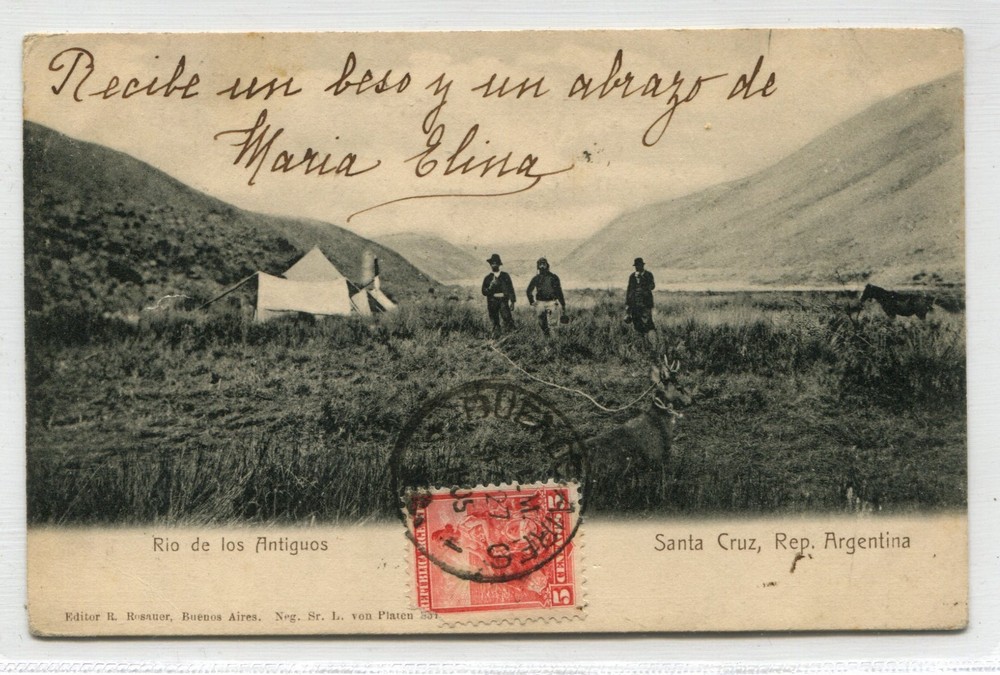 Recibe un beso y un abrazo de
Maria Elina
BUENOS AIRES
27
05
REPUBLICA ARGENTINA
5 CENTAVOS 5
Rio de los Antiguos
Santa Cruz, Rep. Argentina
Editor R. Rosauer, Buenos Aires. Neg. Sr. L. von Platen